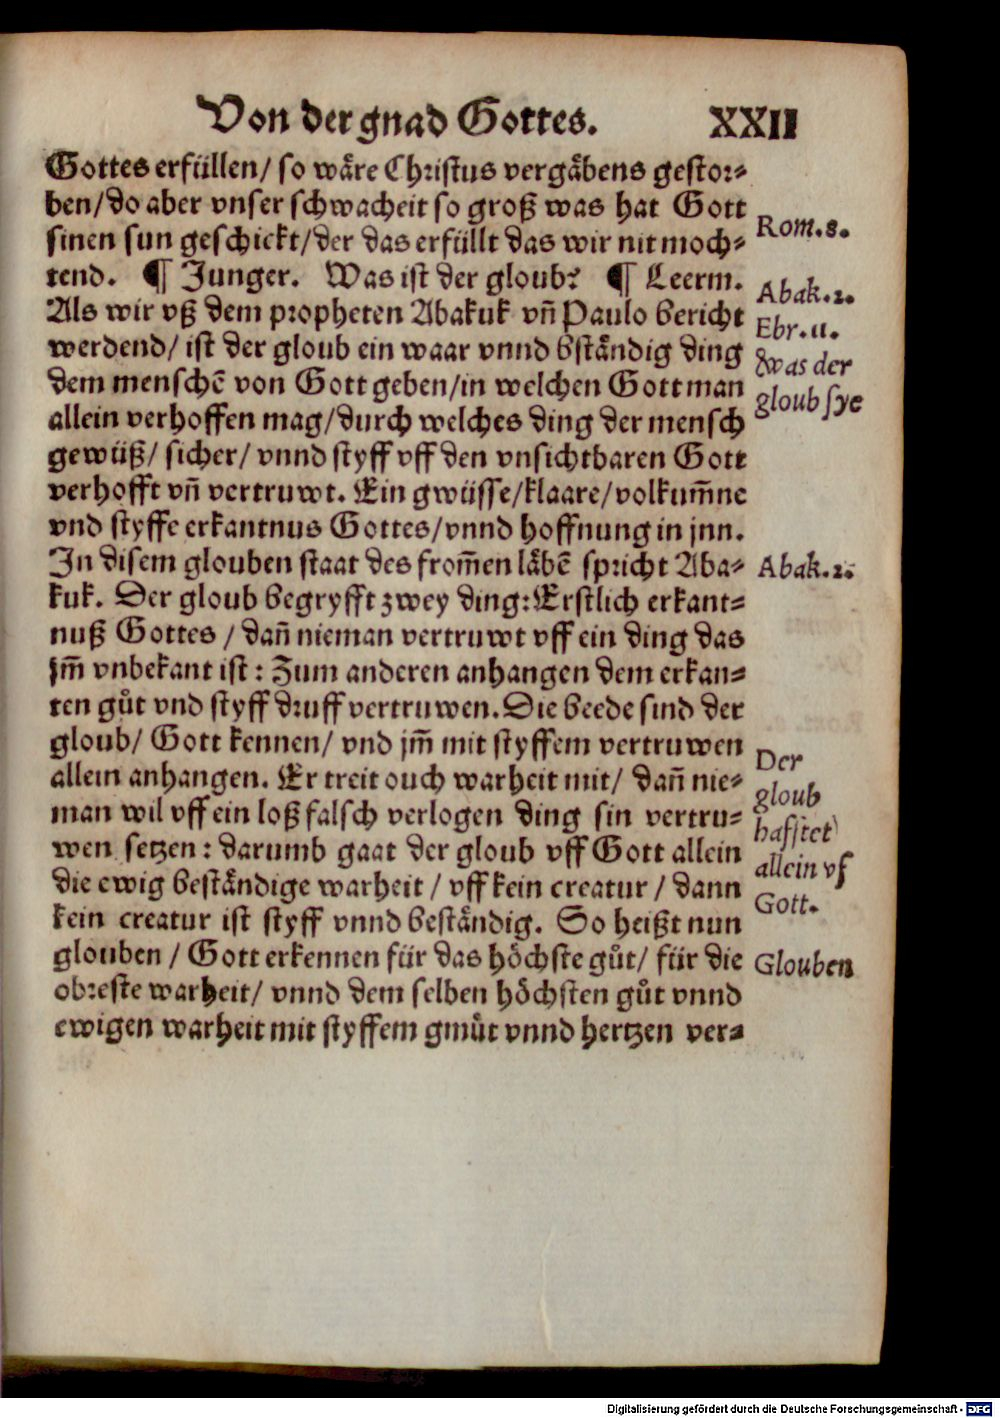 Von der gnad Gottes. XXII
Gottes erfüllen/ so wäre Christus vergäbens gestor⸗
ben/ do aber vnser schwacheit so groß was hat Gott
sinen sun geschickt/ der das erfüllt das wir nit moch⸗
tend. ¶ Junger. Was ist der gloub? ¶ Leerm.
Als wir vß dem propheten Abakuk vn̄ Paulo bericht
werdend/ ist der gloub ein waar vnnd bständig ding
dem menschē von Gott geben/ in welchen Gott man
allein verhoffen mag/ durch welches ding der mensch
gewüß/ sicher/ vnnd styff vff den vnsichtbaren Gott
verhofft vn̄ vertruwt. Ein gwüsse/ klaare/ volkum̄ne
vnd styffe erkantnus Gottes/ vnnd hoffnung in jnn.
In disem glouben staat des from̄en läbē spricht Aba⸗
kuk. Der gloub begryfft zwey ding: Erstlich erkant⸗
nuß Gottes / dan̄ nieman vertruwt vff ein ding das
jm̄ vnbekant ist: Zum anderen anhangen dem erkan⸗
ten gůt vnd styff druff vertruwen. Die beede sind der
gloub/ Gott kennen/ vnd jm̄ mit styffem vertruwen
allein anhangen. Er treit ouch warheit mit/ dan̄ nie⸗
man wil vff ein loß falsch verlogen ding sin vertru⸗
wen setzen: darumb gaat der gloub vff Gott allein
die ewig beständige warheit / vff kein creatur / dann
kein creatur ist styff vnnd beständig. So heißt nun
glouben / Gott erkennen für das höchste gůt/ für die
obreste warheit/ vnnd dem selben höchsten gůt vnnd
ewigen warheit mit styffem gmůt vnnd hertzen ver⸗
Rom.8.
Abak.2.
Ebr.11.
was der
gloub sye
Abak.2.
Der
gloub
hafftet
allein vf
Gott.
Glouben
Digitalisierung gefördert durch die Deutsche Forschungsgemeinschaft - DFG